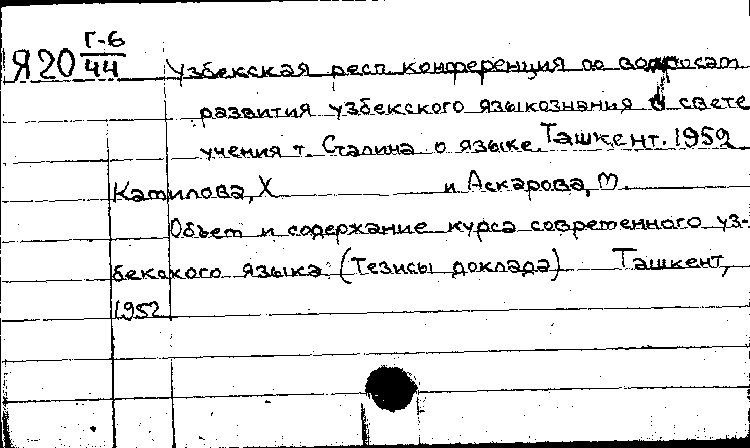 Г-6
Я20 44
Узбекская респ. конференция по вопросам
развития узбекского языкознания в свете
учения т. Сталина о языке. Ташкент. 1952
Камилова, Х и Аскарова, М.
Объем и содержание курса современного уз-
бекского языка: (Тезисы доклада) Ташкент,
1952